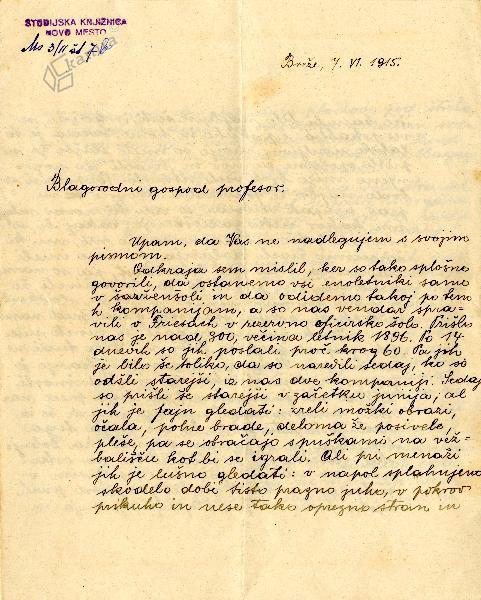 ŠTUDIJSKA KNJIŽNICA
NOVO MESTO
Ms 3/II
kamra
Breže, 7. VI. 1915.
Blagorodni gospod profesor.
Upam, da Vas ne nadlegujem s svojim
pismom.
Odkraja sem mislil, ker so tako splošno
govorili, da ostanemo vsi enoletniki samo
v in da odidemo takoj po tem
h kompanijam, a so nas vendar spra-
vili v Friesach v rezervno oficirsko šolo. Prišlo
nas je nad 300, večina letnik 1896. Po 14
dneh so jih poslali proč krog 60. Pa jih
je bilo še toliko, da so naredili sedaj, ko so
odšli starejši, iz nas dve kompaniji. Sedaj
so prišli še starejši v začetku junija; al
jih je fejn gledati: zreli možki obrazi,
očala, polne brade, deloma že posivele,
pleše, pa se obračajo s puškami na vež-
bališču kot bi se igrali. Ali pri menaži
jih je lušno gledati: v napol splahnjeno
skodelo dobi tisto prazno juho, v pokrov
prikuho in nese tako oprezno stran in